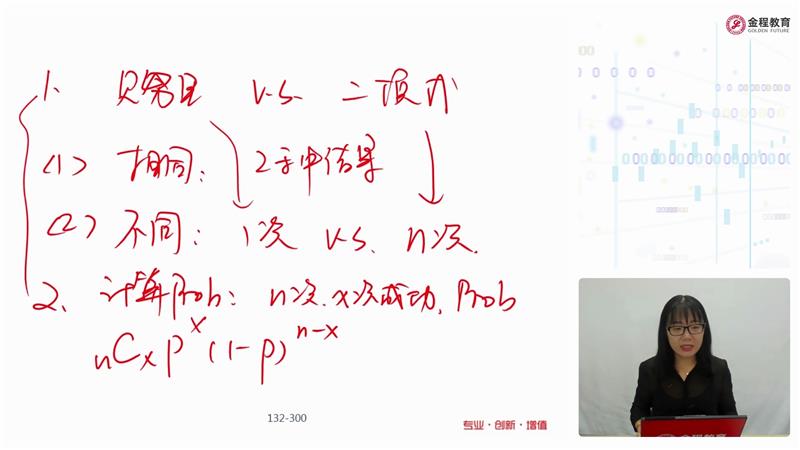 金程教育
GOLDEN FUTURE
1、 贝努里 v.s. 二项式
(1) 相同： 2种结果
(2) 不同： 1次 v.s. n次.
2、 计算Prob： n次.x次成功, Prob
nCx p^x (1-p)^n-x
132-300
专业·创新·增值
金程教育